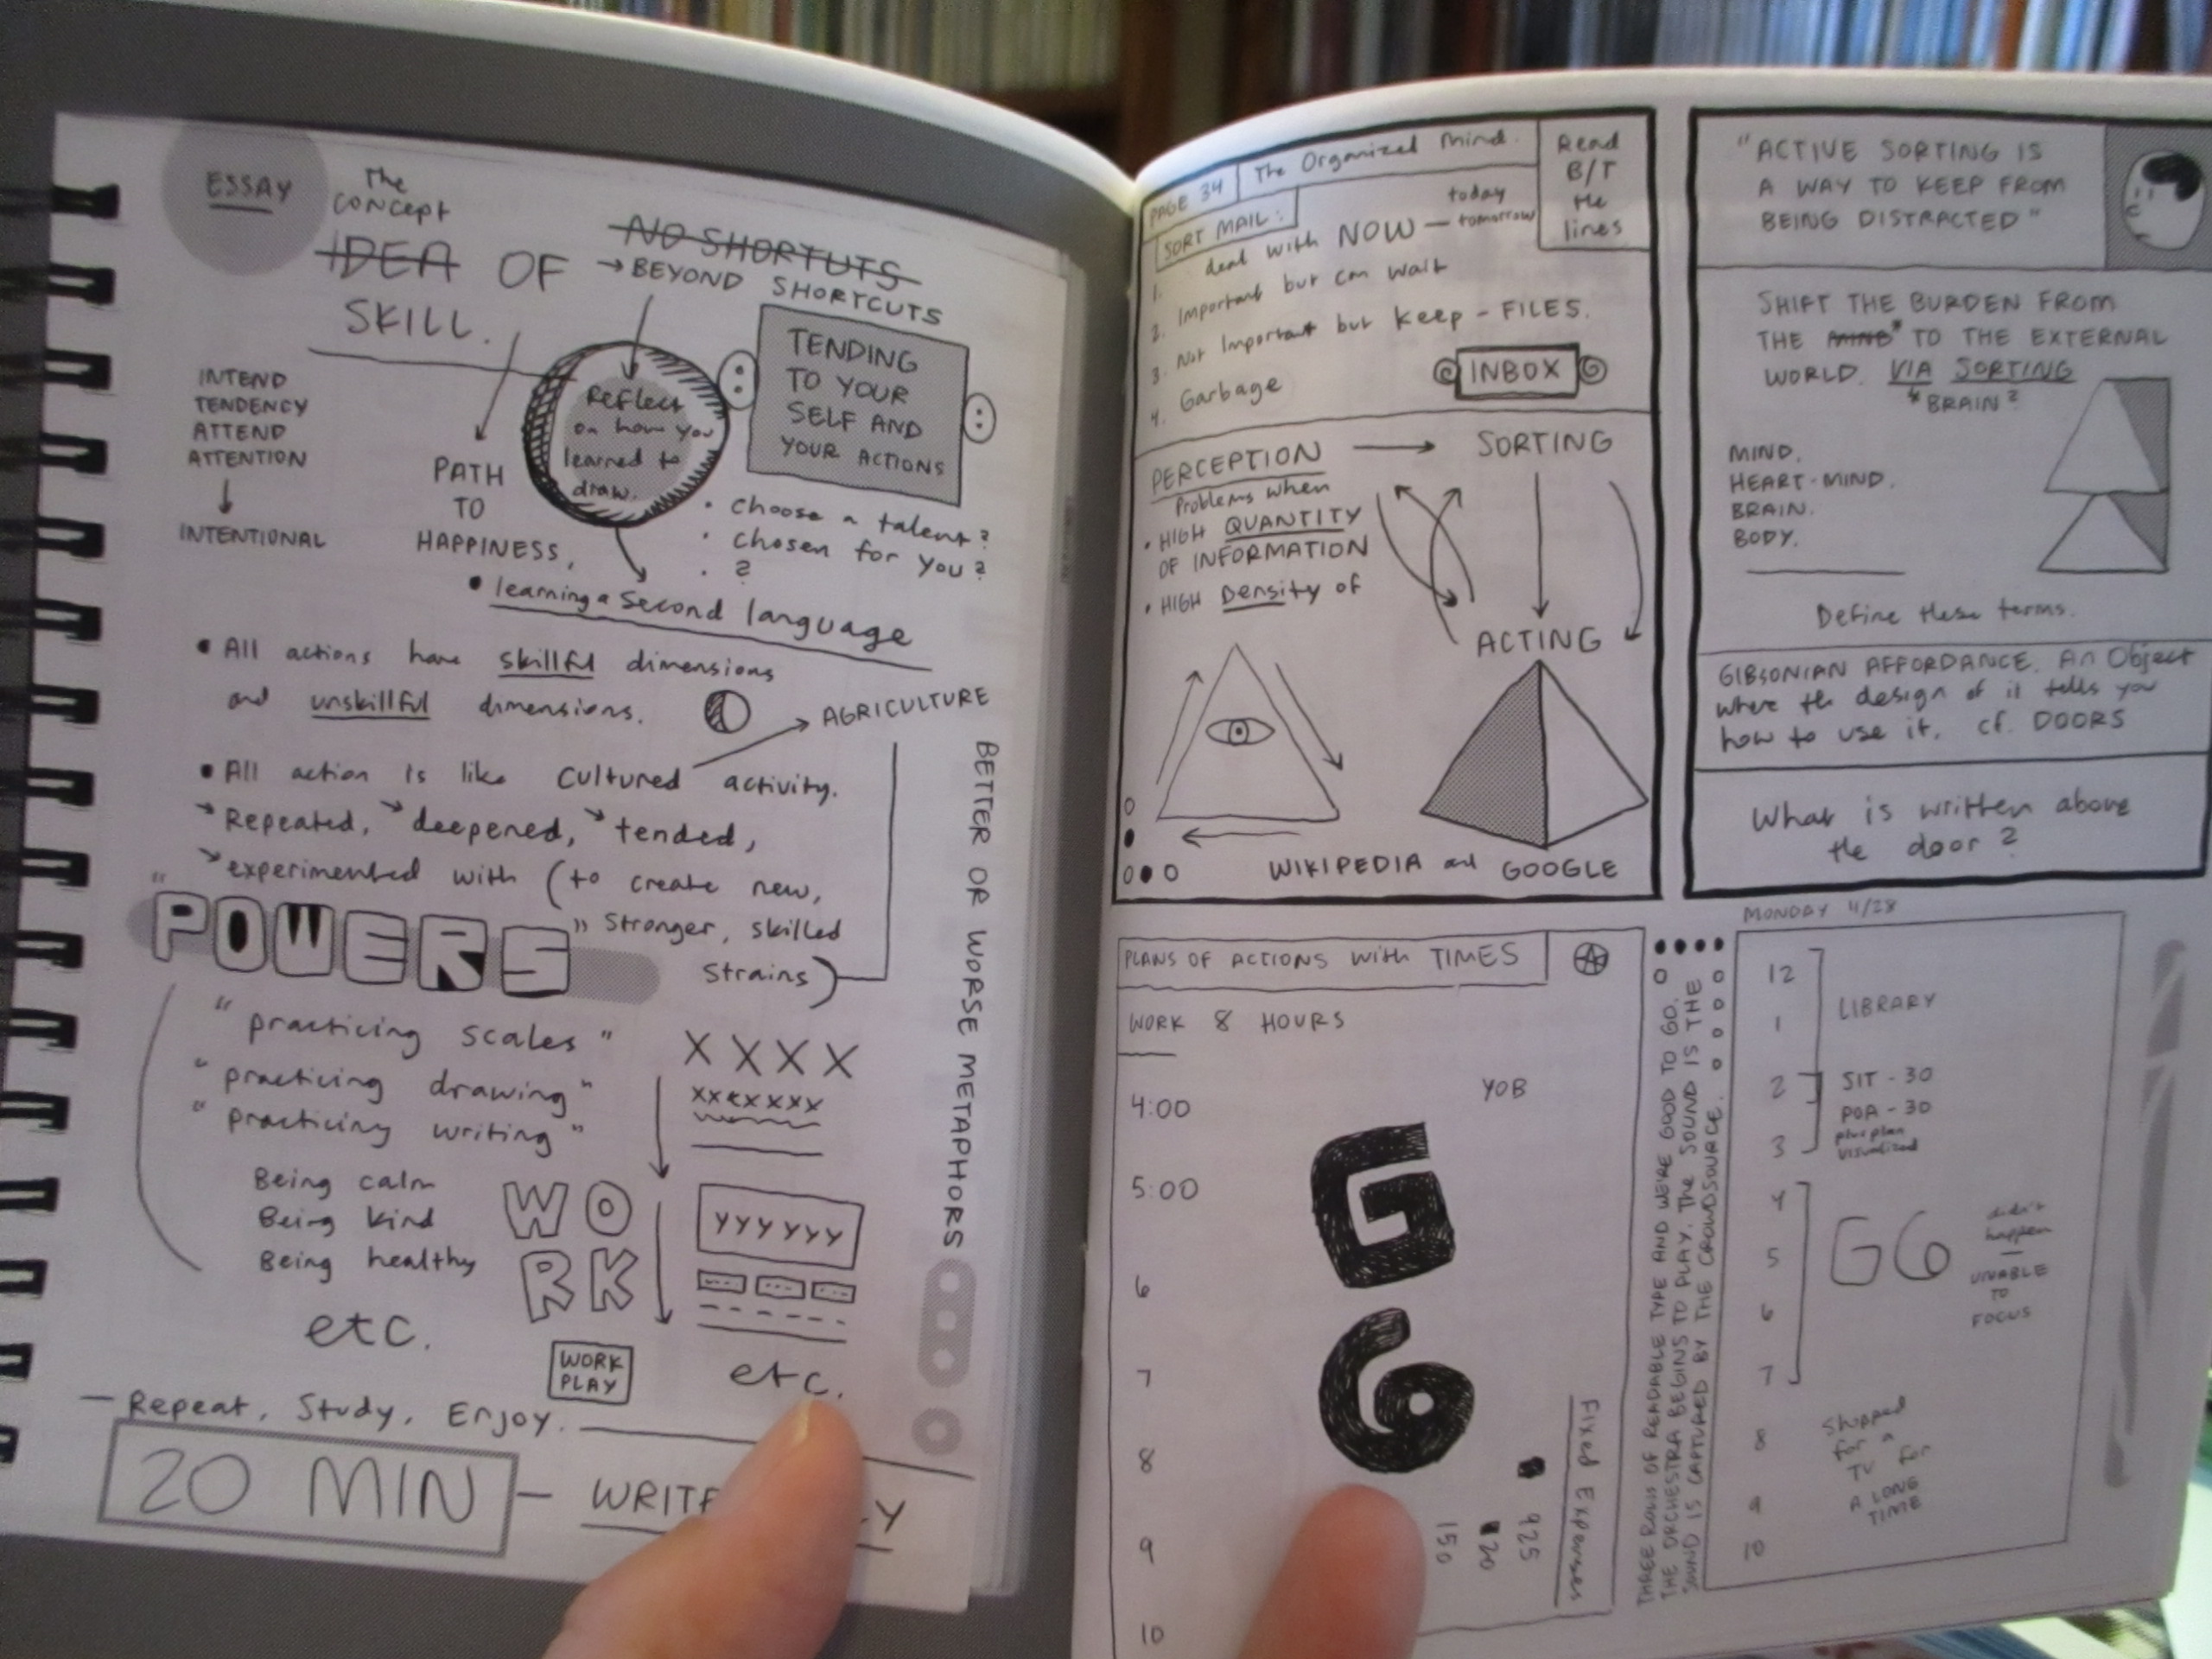 ESSAY
The
Concept
IDEA OF
NO SHORTUTS
→ BEYOND
SHORTCUTS
SKILL.
INTEND
TENDENCY
ATTEND
ATTENTION
↓
INTENTIONAL
PATH
TO
HAPPINESS,
Reflect
on how you
learned to
draw.
TENDING
TO YOUR
SELF AND
YOUR ACTIONS
• Choose a talent?
• Chosen for you?
• ?
• learning a Second language
• All actions have skillful dimensions
and unskillful dimensions.
AGRICULTURE
• All action is like cultured activity.
Repeated, deepened, tended,
experimented with (to create new,
"POWERS" Stronger, skilled
Strains)
"practicing scales"
"practicing drawing"
"practicing writing"
Being calm
Being kind
Being healthy
etc.
X X X X
XXXXXXX
WO
RK
YYYYYY
WORK
PLAY
etc.
BETTER OR WORSE METAPHORS
— Repeat, Study, Enjoy.
20 MIN —
PAGE 34
The Organized Mind.
Read
B/T
the
lines
SORT MAIL:
1. deal with NOW — today
tomorrow
2. Important but can wait
3. Not Important but Keep - FILES.
4. Garbage
INBOX
PERCEPTION → SORTING
Problems when
• HIGH QUANTITY
OF INFORMATION
• HIGH Density of
ACTING
WIKIPEDIA and GOOGLE
"ACTIVE SORTING IS
A WAY TO KEEP FROM
BEING DISTRACTED"
SHIFT THE BURDEN FROM
THE MIND* TO THE EXTERNAL
WORLD. VIA SORTING
* BRAIN?
MIND.
HEART-MIND.
BRAIN.
BODY.
Define these terms.
GIBSONIAN AFFORDANCE. An Object
where the design of it tells you
how to use it. cf. DOORS
What is written above
the door?
PLANS OF ACTIONS with TIMES
WORK 8 HOURS
YOB
4:00
5:00
6
7
8
9
10
G6
925
120
150
Fixed Expenses
THREE ROWS OF READABLE TYPE AND WE'RE GOOD TO GO.
THE ORCHESTRA BEGINS TO PLAY. THE SOUND IS THE
SOUND IS CAPTURED BY THE CROWDSOURCE.
MONDAY 11/28
12
1
LIBRARY
2
SIT - 30
POA - 30
plus plan
visualized
3
4
5
6
7
G6
didn't
happen
—
UNABLE
TO
FOCUS
8
9
10
Shopped
for a
TV for
A LONG
TIME